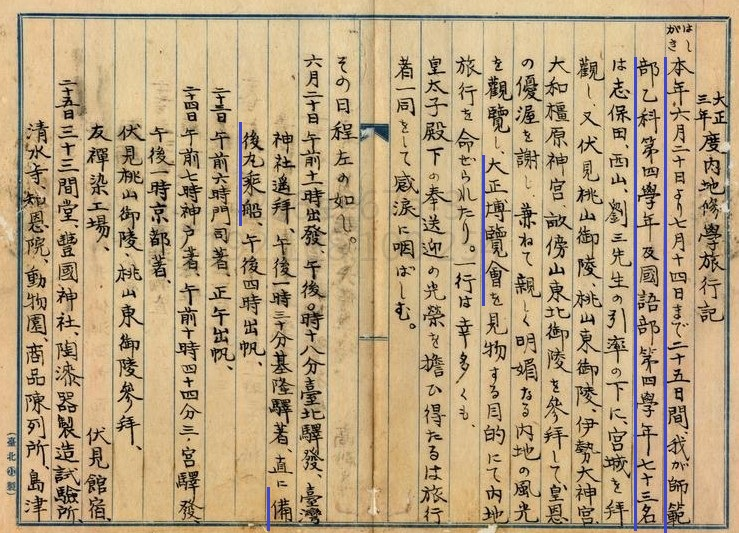 大正三年度内地修學旅行記
はしがき
本年六月二十日より七月十四日まで二十五日間、我が師範
部乙科第四學年及國語部第四學年七十三名
は志保田、西山、劉三先生の引率の下に、宮城を拜
觀し、又伏見桃山御陵、桃山東御陵、伊勢大神宮、
大和橿原神宮、畝傍山東北御陵を參拜して皇恩
の優渥を謝し、兼ねて親しく明媚なる内地の風光
を觀覽し、大正博覽會を見物する目的にて内地
旅行を命ぜられたり。一行は幸多くも、
皇太子殿下の奉送迎の光榮を擔ひ得たるは旅行
者一同をして感涙に咽ばしむ。
その日程左の如し。
六月二十日午前十一時出發、午後〇時十八分臺北驛發、臺灣
神社遙拜、午後一時三十分基隆驛著、直に備
後丸乘船、午後四時出帆、
二十三日午前六時門司著、正午出帆、
二十四日午前七時神戸著、午前十時四十四分三ノ宮驛發、
午後一時京都著、
伏見桃山御陵、桃山東御陵參拜、
友禪染工場、 伏見館宿、
二十五日三十三間堂、豐國神社、陶漆器製造試驗所、
清水寺、知恩院、動物園、商品陳列所、島津
(臺北小製)